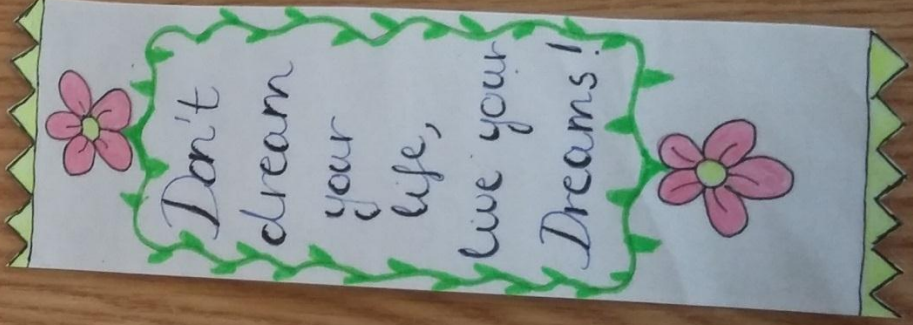 Don't
dream
your
life,
live your
Dreams!